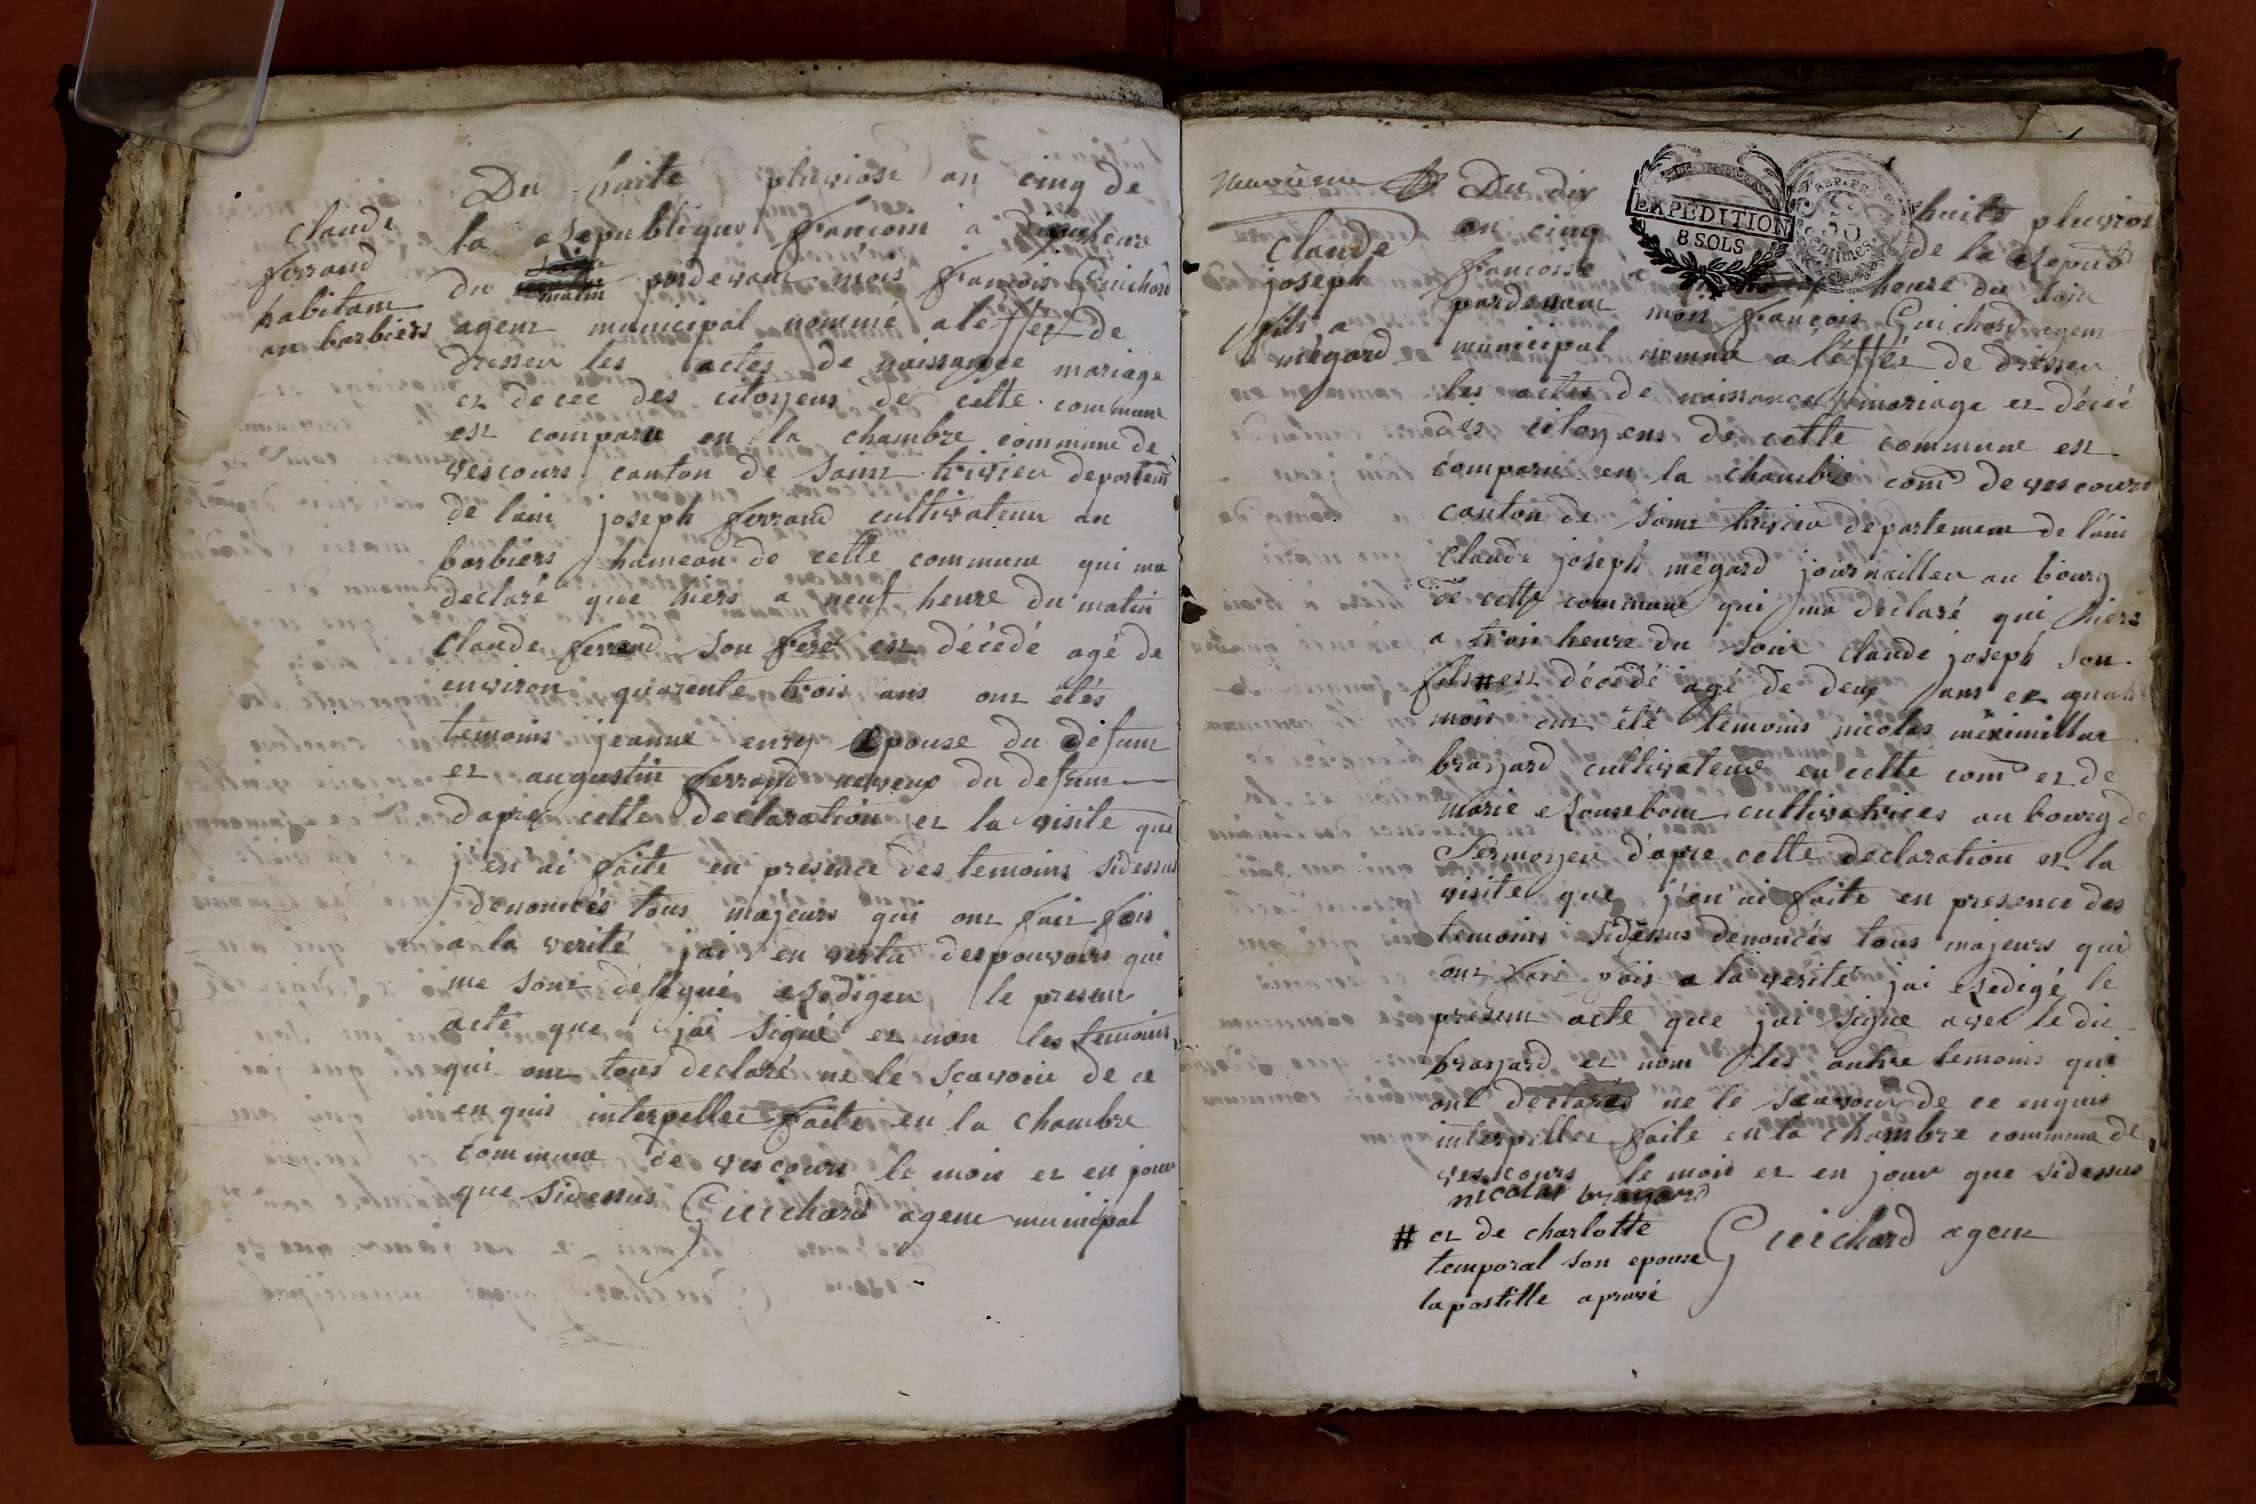 Du huite pluviose an cinq de
la republique francoise a dix heure
du matin pardevant mois françois Guichard
agent municipal nommé a leffet de
dresser les actes de naissance mariage
et decec des citoyens de cette commune
est comparu en la chambre commune de
vescours canton de saint trivier departem
de lain joseph ferrand cultivateur au
barbiers hameau de cette commune qui ma
declaré que hiers a neuf heure du matin
claude ferrand son frere est décédé agé de
environ quarente trois ans ont etés
temoins jeanne enry epouse du defunt
et augustin ferrand neveux du defunt
dapres cette declaration et la visite que
j'en ai faite en presence des temoins sidessus
denoncés tous majeurs qui ont fait fois
a la verité jai en vertu des pouvoirs qui
me sont délégué redigeu le present
acte que jai signé et non les temoins
qui ont tous declaré ne le scavoir de ce
enquis interpeller faite en la chambre
commune de vescours le mois et en jour
que sidessus Guichard agent municipal
claude
ferrand
habitant
au barbiers
neuvieme
Claude
joseph
fils a
mégard
Du dix huite pluvios
an cinq de la Repub
francoise a heure du soir
pardevant mois françois Guichard agent
municipal nommé a l'éffét de dresser
les actes de naissance mariage et décéé
des citoyens de cette commune est
comparu en la chambre com de vescours
canton de saint trivier departement de l'ain
claude joseph mégard journailler au bourg
de cette commune qui ma declaré qui hiers
a trois heure du soir claude joseph son
fils # est décédé agé de deux ans et quatr
mois ont été temoins nicolas
brayard cultivateur en cette com et de
marie Rousebour cultivatrices au bourg de
Sermoyer d'apre cette declaration et la
visite que j'en ai faite en presence des
temoins sidessus denoncés tous majeurs qui
ont fait fois a la verité jai redigé le
present acte que jai signe avec le dit
brayard et nom les autre temoins qui
ont declarés ne le scavoir de ce enquis
interpeller faite en la chambre commune de
vescours le mois et en jour que sidessus
nicolas brayard
Guichard agent
# et de charlotte
temporal son epouse
la postille aprové
EXPEDITION
8 SOLS
REP. FRA
centimes